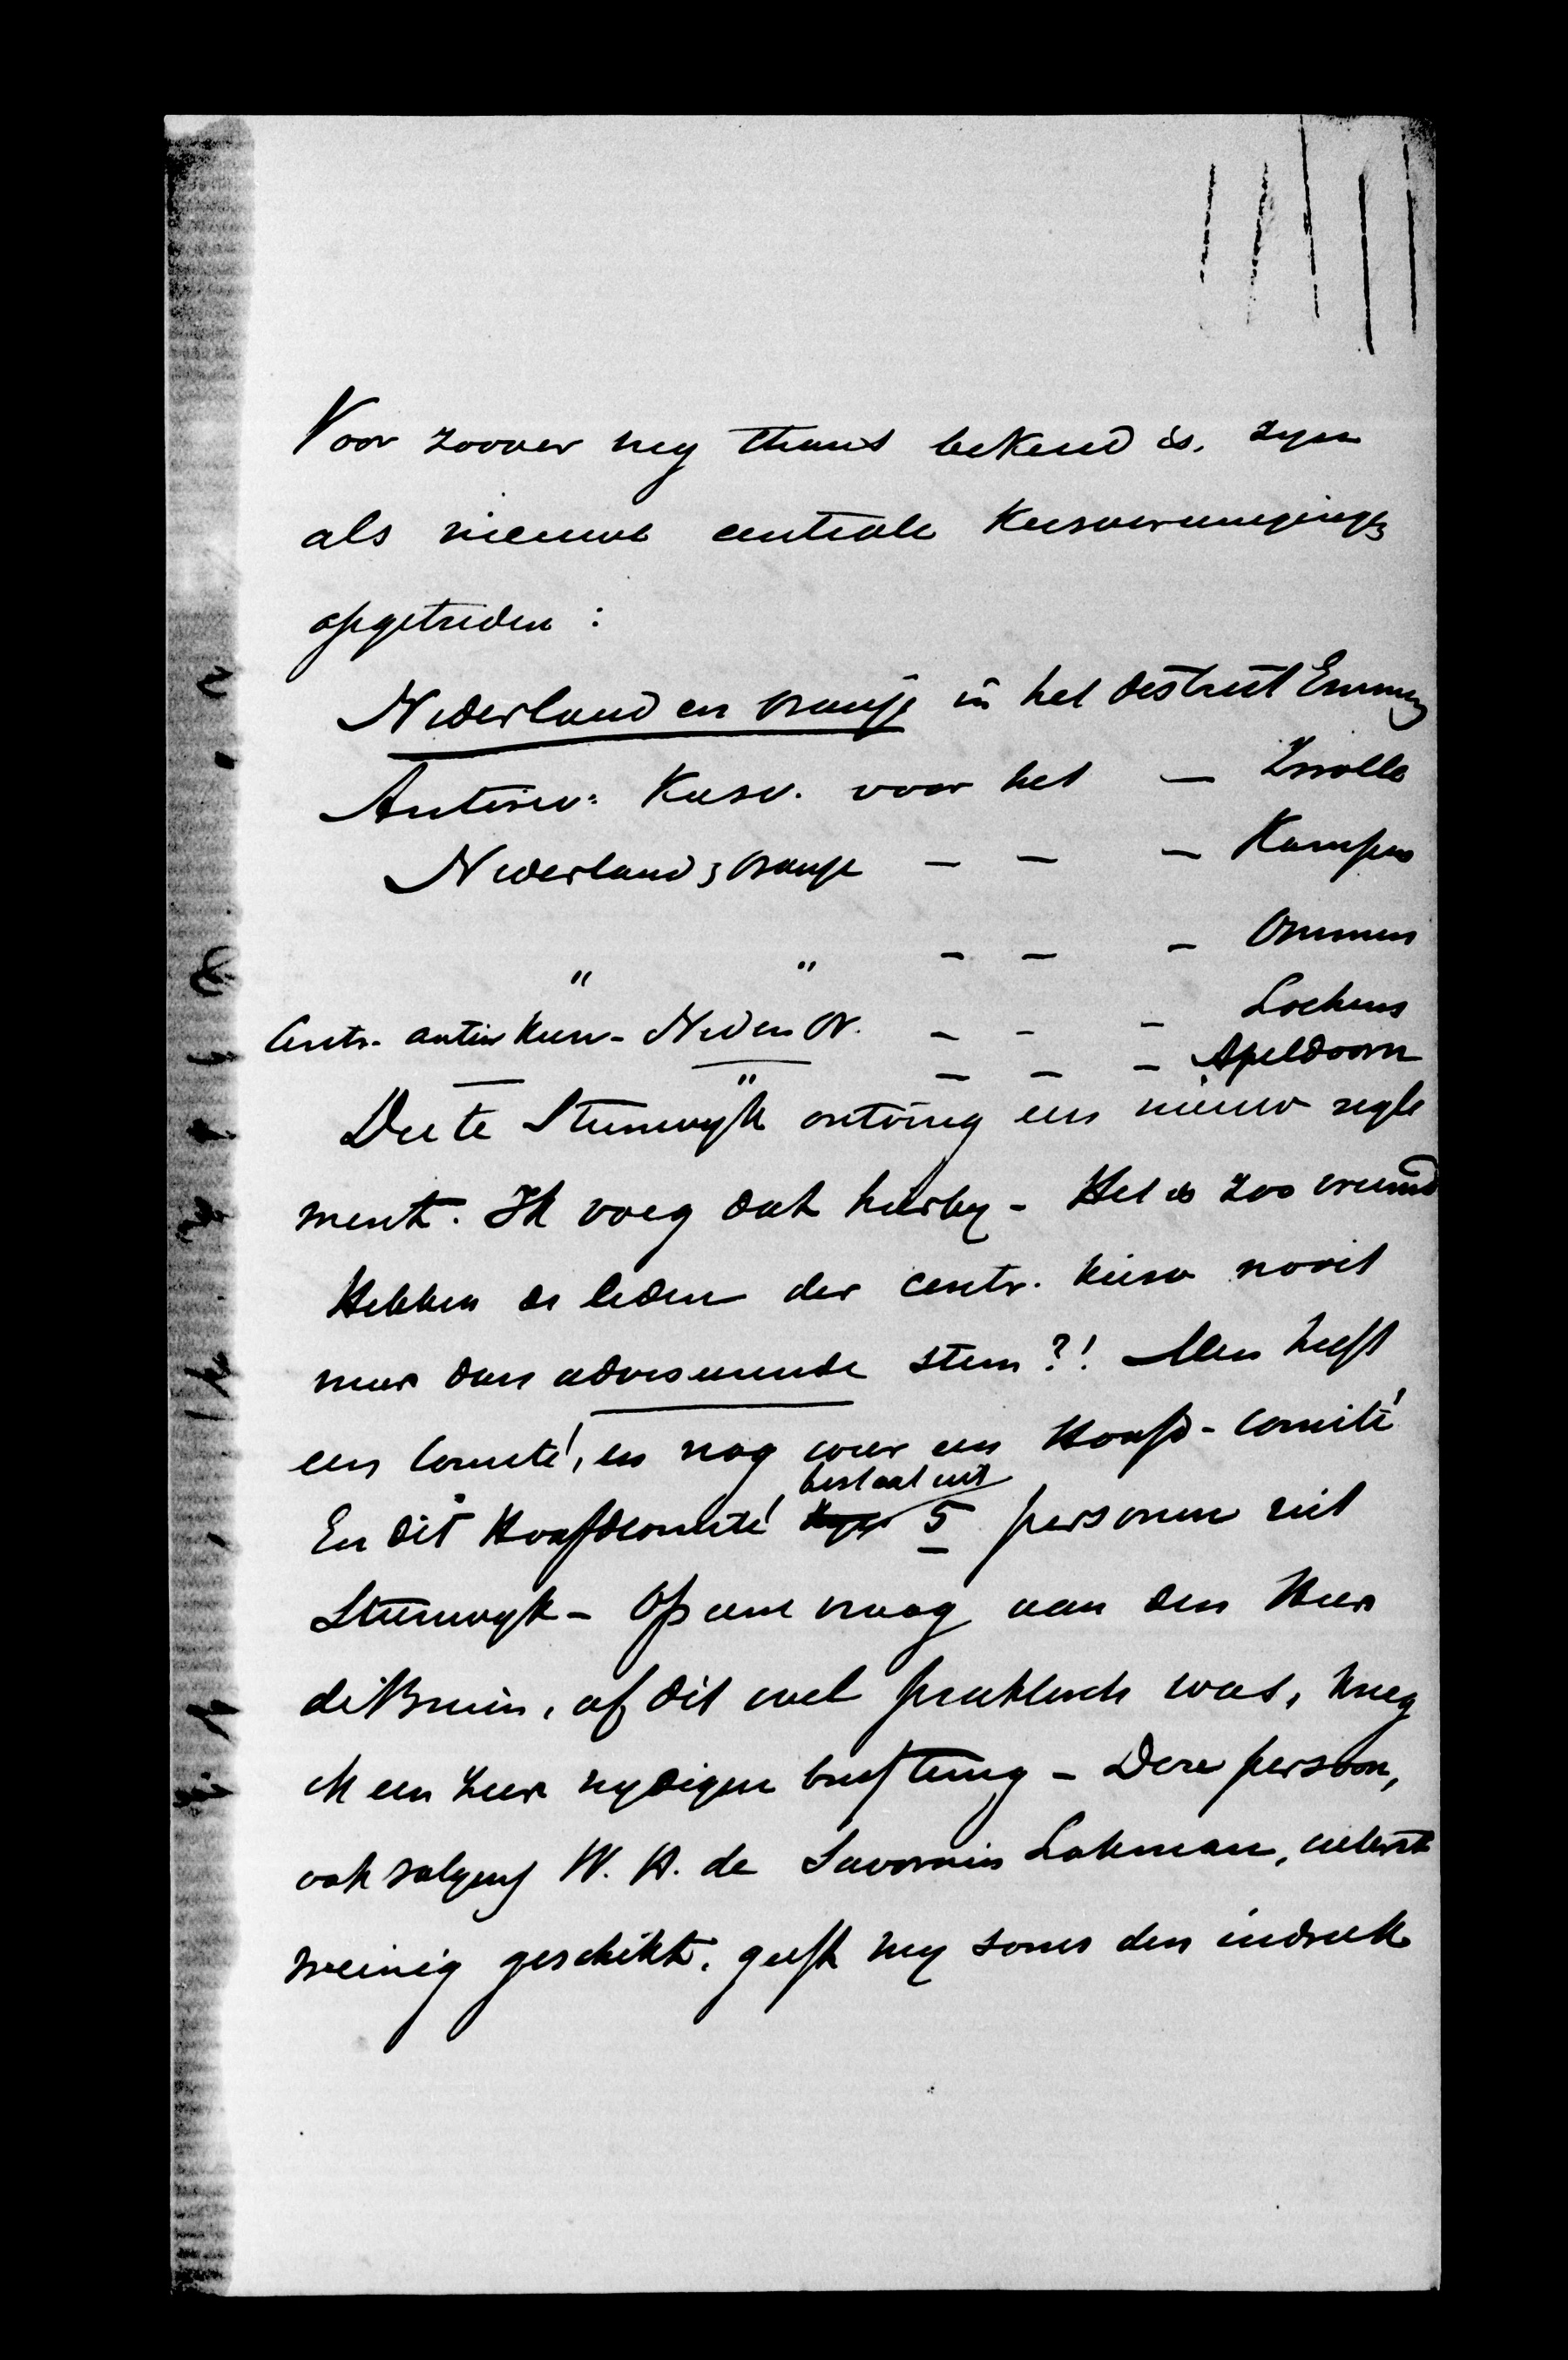 Voor zoover my thans bekend is, zyn
als nieuwe centrale Kiesvereenigings
opgetreden :
Nederland en Oranje in het district Emmen
Antirev: Kiesv. voor het — Zwolle
Nederland & Oranje — — — Kampen
" " — — — Ommen
Centr. antir Kiesv. Ned en Or. — — — Lochem
— " — — — Apeldoorn
Die te Steenwyk ontving een nieuw regle
ment. Ik voeg dat hierby - Het is zoo vreemd
Hebben de leden der centr. kiesv nooit
meer dan adviseerende stem ?! Men heeft
een Comité, en nog weer een Hoofd-Comité
En dit Hoofdcomité bestaat uit 5 personen uit
Steenwyk - Op eene vraag aan den Heer
de Bruin, of dit wel praktisch was, kreeg
ik een zeer nydigen brief terug - Deze persoon,
ook volgens W. H. de Savornin Lohman, uiterst
weinig geschikt, geeft my soms den indruk